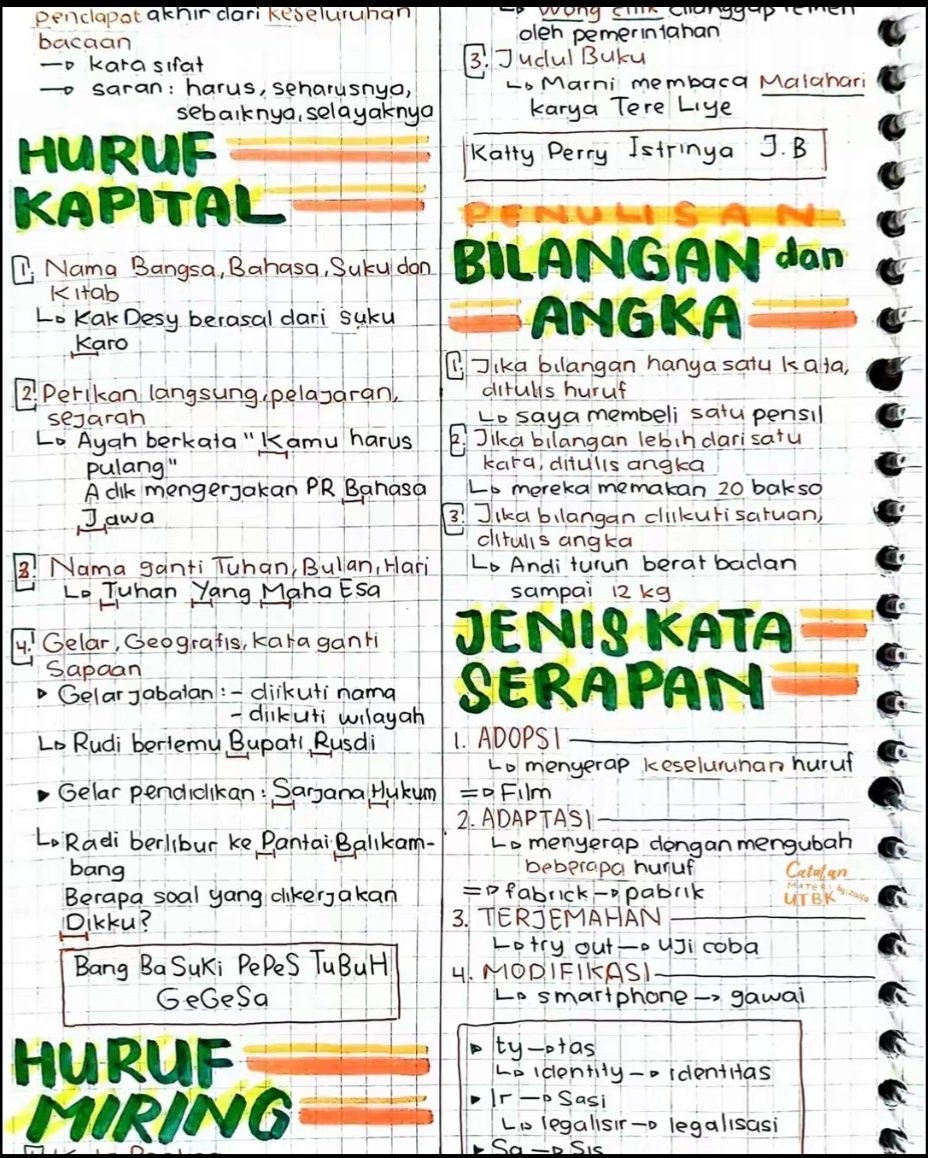 pendapat akhir dari keseluruhan
bacaan
→ kata sifat
→ saran : harus, seharusnya,
sebaiknya, selayaknya
HURUF
KAPITAL
1. Nama Bangsa, Bahasa, Suku dan
Kitab
↳ Kak Desy berasal dari suku
Karo
2. Petikan langsung, pelajaran,
sejarah
↳ Ayah berkata "Kamu harus
pulang"
Adik mengerjakan PR Bahasa
Jawa
3. Nama ganti Tuhan, Bulan, Hari
↳ Tuhan Yang Maha Esa
4. Gelar, Geografis, kata ganti
Sapaan
▸ Gelar jabatan : - diikuti nama
- diikuti wilayah
↳ Rudi bertemu Bupati Rusdi
▸ Gelar pendidikan : Sarjana Hukum
↳ Radi berlibur ke Pantai Balikam-
bang
Berapa soal yang dikerjakan
Dikku?
Bang BaSuKi PePeS TuBuH
GeGeSa
HURUF
MIRING
↳ Wong cilik dianggap remeh
oleh pemerintahan
3. Judul Buku
↳ Marni membaca Matahari
karya Tere Liye
Katty Perry Istrinya J.B
PENULISAN
BILANGAN dan
ANGKA
1. Jika bilangan hanya satu kata,
ditulis huruf
↳ saya membeli satu pensil
2. Jika bilangan lebih dari satu
kata, ditulis angka
↳ mereka memakan 20 bakso
3. Jika bilangan diikuti satuan,
ditulis angka
↳ Andi turun berat badan
sampai 12 kg
JENIS KATA
SERAPAN
1. ADOPSI
↳ menyerap keseluruhan huruf
=▷ Film
2. ADAPTASI
↳ menyerap dengan mengubah
beberapa huruf
=▷ fabrick → pabrik
Catatan
MATERI by: zaija
UTBK
3. TERJEMAHAN
↳ try out → uji coba
4. MODIFIKASI
↳ smartphone → gawai
▸ ty → tas
↳ identity → identitas
▸ Ir → Sasi
↳ legalisir → legalisasi
▸ Sa → Sis